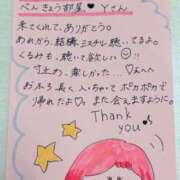 べんきょう部屋♥Yさん
来てくれて、ありがとう。
あれから、結構ミスチル聴いてるよ。
くるみも、聴いて欲しい♡
寸止め、楽しかった…♡
おふろ長く入っちゃてポカポカで
帰れたよ♡また会えますように。
Thank
you♥